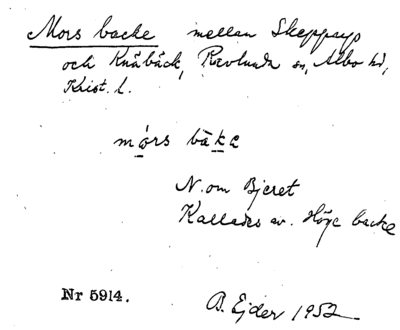 Mors backe mellan Skepparp
och Knäbäck, Ravlunda sn, Albo hd,
Krist. l.
mórs bakε
N. om Bjeret
Kallades äv. Höge backe
Nr 5914.
B. Ejder 1952